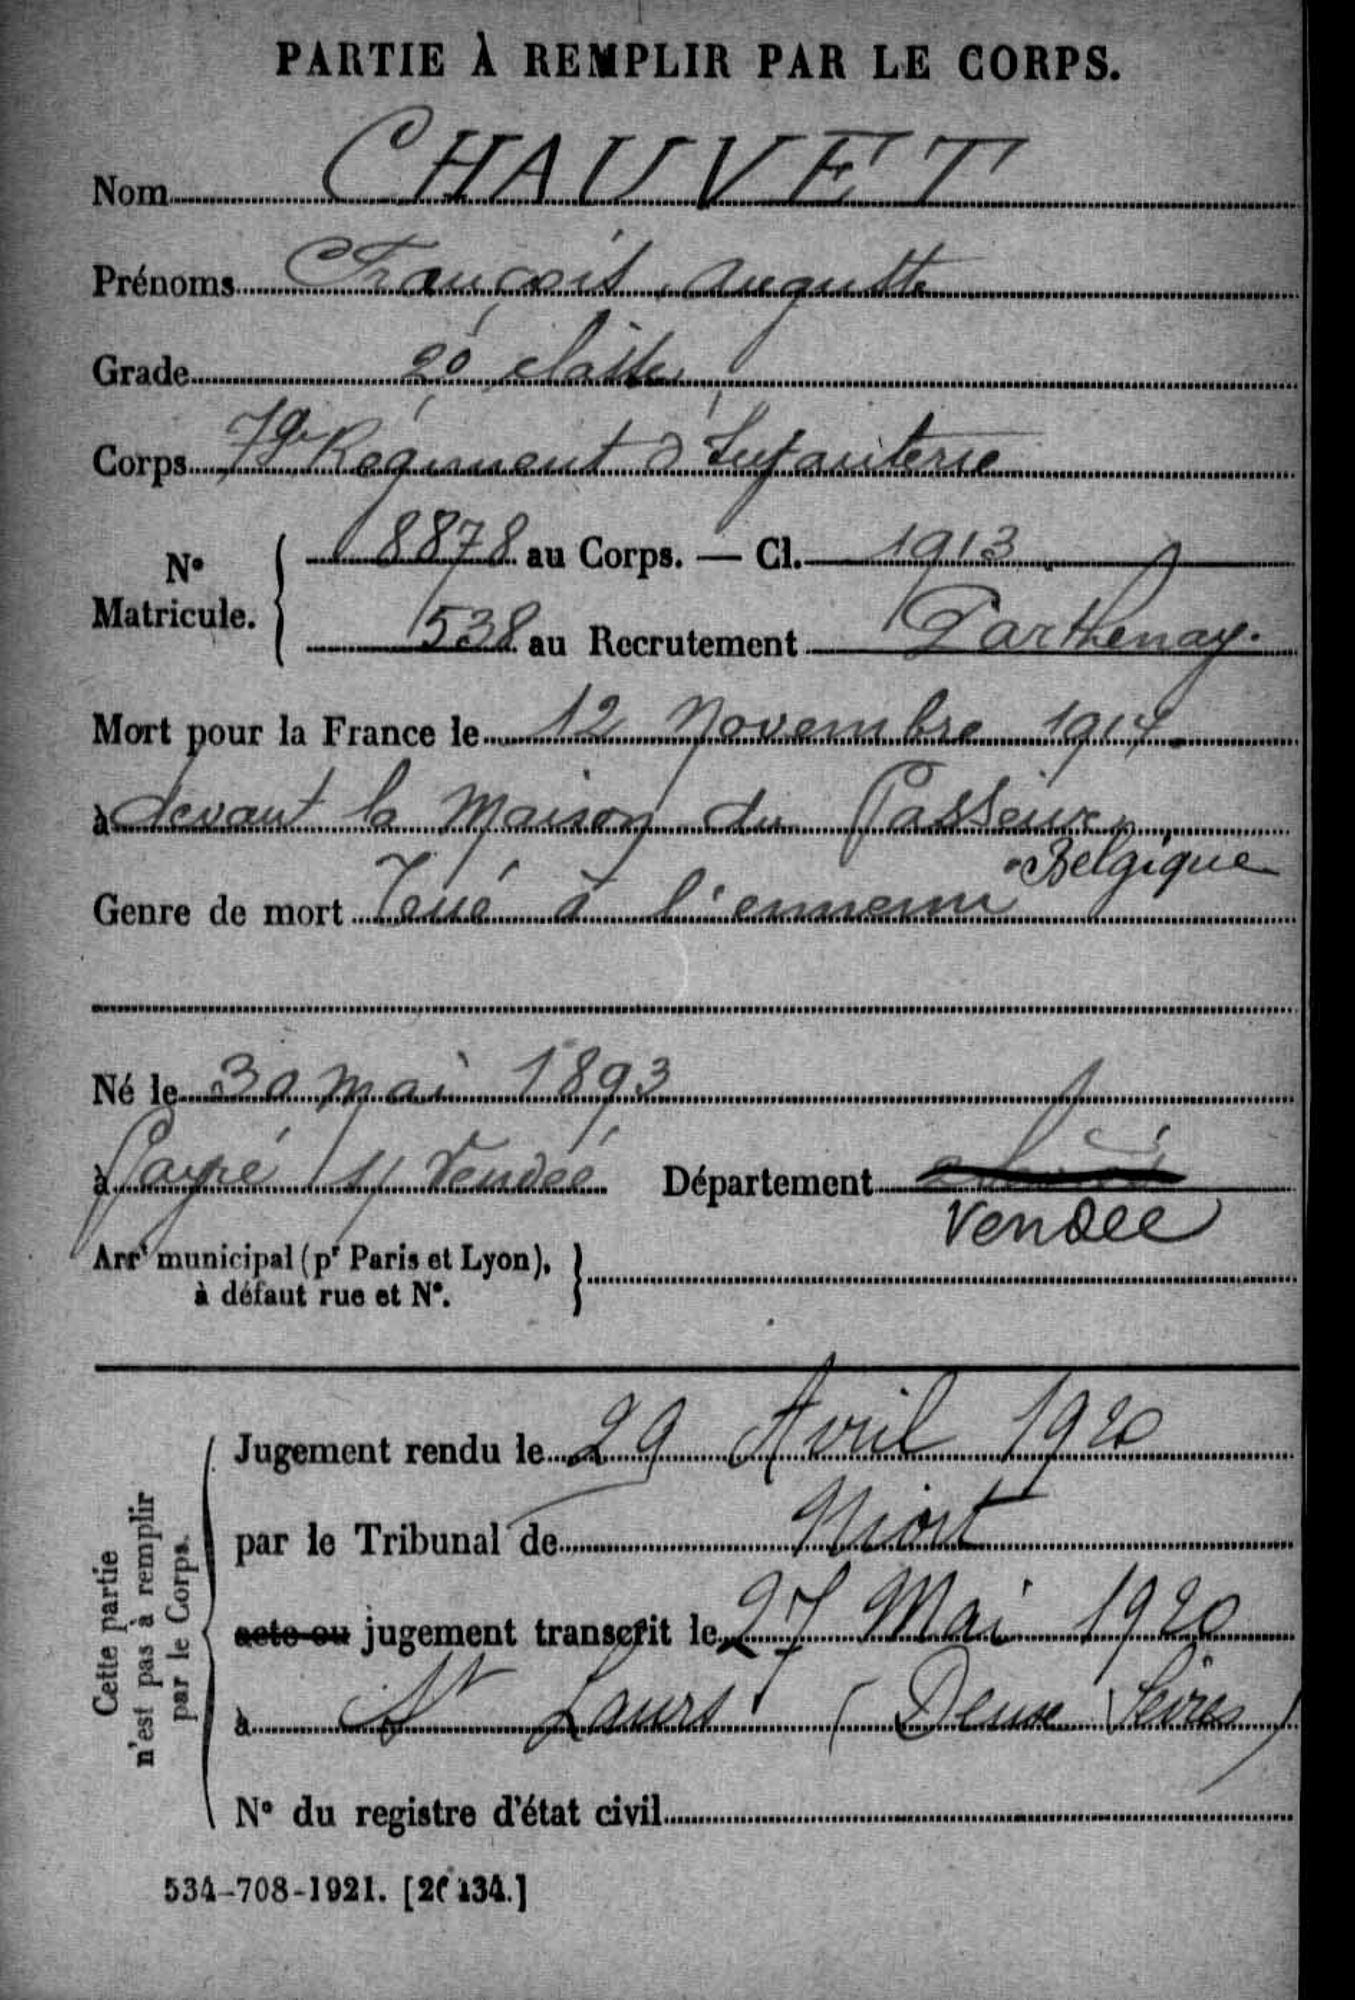 PARTIE À REMPLIR PAR LE CORPS.
Nom CHAUVET
Prénoms François, Auguste
Grade 2e classe
Corps 79e Régiment d'Infanterie
No Matricule. { 8878 au Corps. — Cl. 1913
538 au Recrutement Parthenay.
Mort pour la France le 12 Novembre 1914.
à devant la Maison du Passeur,
Belgique
Genre de mort Tué à l'ennemi
Né le 30 mai 1893
à Payré s/ Vendée Département
Vendée
Arrt municipal (pr Paris et Lyon), }
à défaut rue et No.
Cette partie
n'est pas à remplir
par le Corps.
Jugement rendu le 29 Avril 1920
par le Tribunal de Niort
acte ou jugement transcrit le 27 Mai 1920
à St Laurs (Deux Sèvres)
No du registre d'état civil
534-708-1921. [26134.]